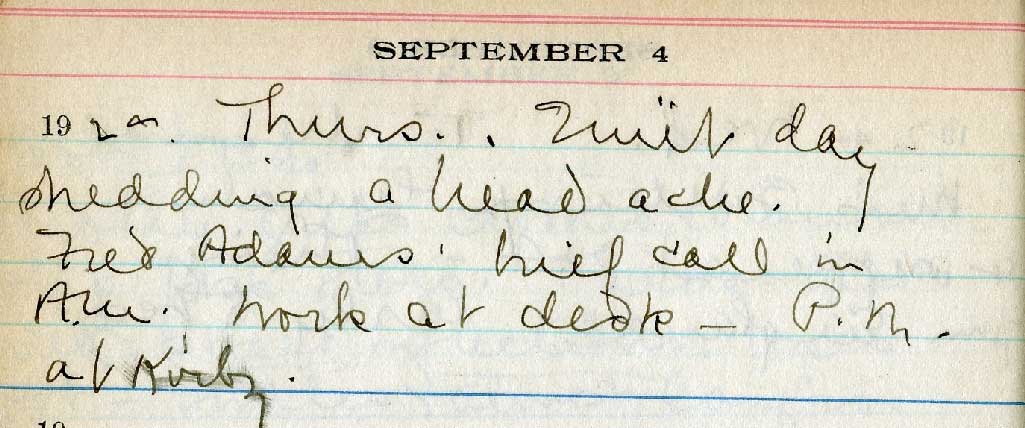 SEPTEMBER 4
19 Thurs. Quiet day
shedding a head ache.
Fred Adams' brief call in
A.M., work at desk – P.M.
at Kirby.